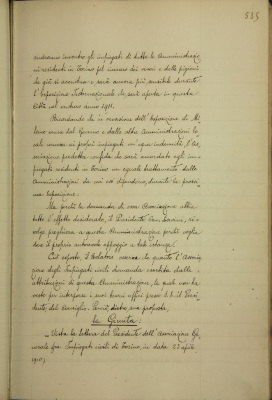 535
andranno incontro gli impiegati di tutte le Amministrazio-
ni residenti in Torino pel rincaro dei viveri e delle pigioni
che già si accentua e sarà ancora più sensibile durante
l'Esposizione Internazionale che sarà aperta in questa
Città nel venturo anno 1911.
Ricordando che in occasione dell'Esposizione di Mi-
lano venne dal Governo e dalle altre Amministrazioni lo-
cali concessa ai propri impiegati una equa indennità, l'As-
sociazione predetta confida che sarà accordato agli im-
piegati residenti in Torino un eguale trattamento dalle
Amministrazioni da cui essi dipendono, durante la prossi-
ma Esposizione.
Ma perchè la domanda di essa Associazione otten-
ga l'effetto desiderato, il Presidente si ri-
volge preghiera a questa Amministrazione perchè voglia
dare il proprio autorevole appoggio a tale istanza.
Ciò esposto, il Relatore osserva che quanto l'Associa-
zione degli Impiegati civili domanda esorbita dalle
attribuzioni di questa Amministrazione, la quale non ha
veste per interporre i suoi buoni uffici presso S. E. il Presi-
dente del Consiglio. Perciò, dietro sua proposta,
la Giunta:
"Vista la lettera del Presidente dell'Associazione Ge-
nerale fra Impiegati civili di Torino, in data 22 aprile
1910;